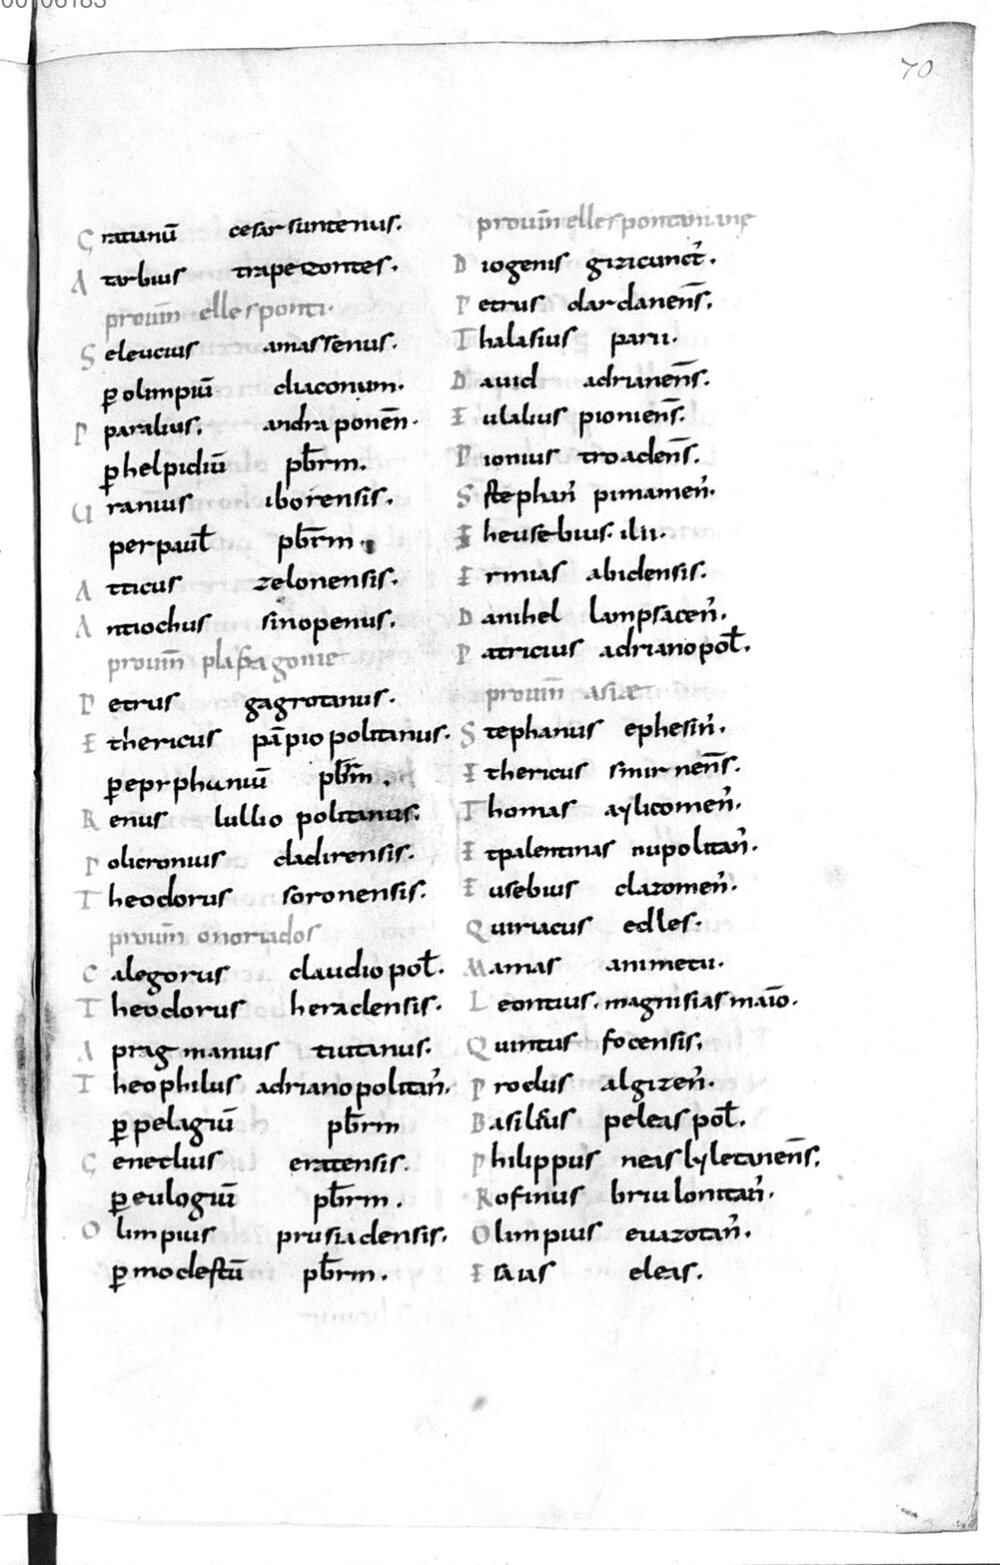 00106183
70
Gratianū cesarsuntenus.
Aturbius trapezontes.
prouin̄ ellesponti.
Seleucius amassenus.
ꝑ olimpiū diaconum.
Pparalius. andraponen̄.
ꝑ helpidiū pb̄rm.
Uranius iborensis.
per paul̄ pb̄rm.
Atticus zelonensis.
Antiochus sinopenus.
prouin̄ plafagonie
Petrus gagrotanus.
Ethericus pāpiopolitanus.
ꝑ epyphaniū pb̄rm.
Renus lullio politanus.
Policronius dadirensis.
Theodorus soronensis.
prouin̄ onoriados
Calegorus claudiopol̄.
Theodorus heraclensis.
Apragmanius tiutanus.
Theophilus adrianopolitan̄.
ꝑ pelagiū pb̄rm
Geneclius eratensis.
ꝑ eulogiū pb̄rm.
Olimpius prusiadensis.
ꝑ modestū pb̄rm.
prouin̄ ellesponti
Diogenis gizicunct̄.
Petrus dardanens̄.
Thalasius parii.
Dauid adrianens̄.
Eulalius pioniens̄.
Pionius troadens̄.
Stephan̄ pimamen̄.
Eheusebius. ilii.
Ermias abidensis.
Danihel lampsacen̄.
Patricius adrianopol̄.
prouin̄ asiae
Stephanus ephesin̄.
Ethericus smirnens̄.
Thomas aylicomen̄.
Etpalentinas nupolitan̄.
Eusebius clazomen̄.
Quiriacus edles.
Mamas animetu.
Leontius. magnisias maīo.
Quintus focensis.
Proclus algizen̄.
Basilius peleas pol̄.
Philippus neas lyletaniens̄.
Rofinus briulonitan̄.
Olimpius euazotan̄.
Esaias eleas.